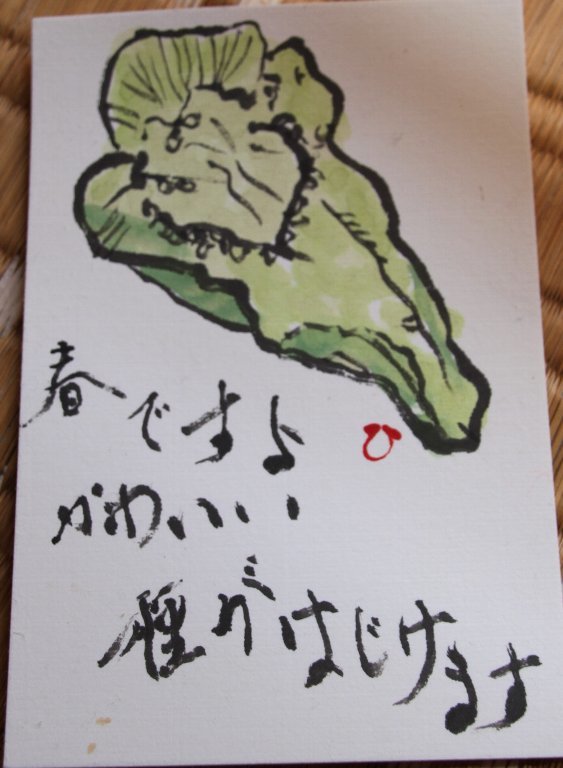 春ですよ
かわいい
種がはじけます
ひ